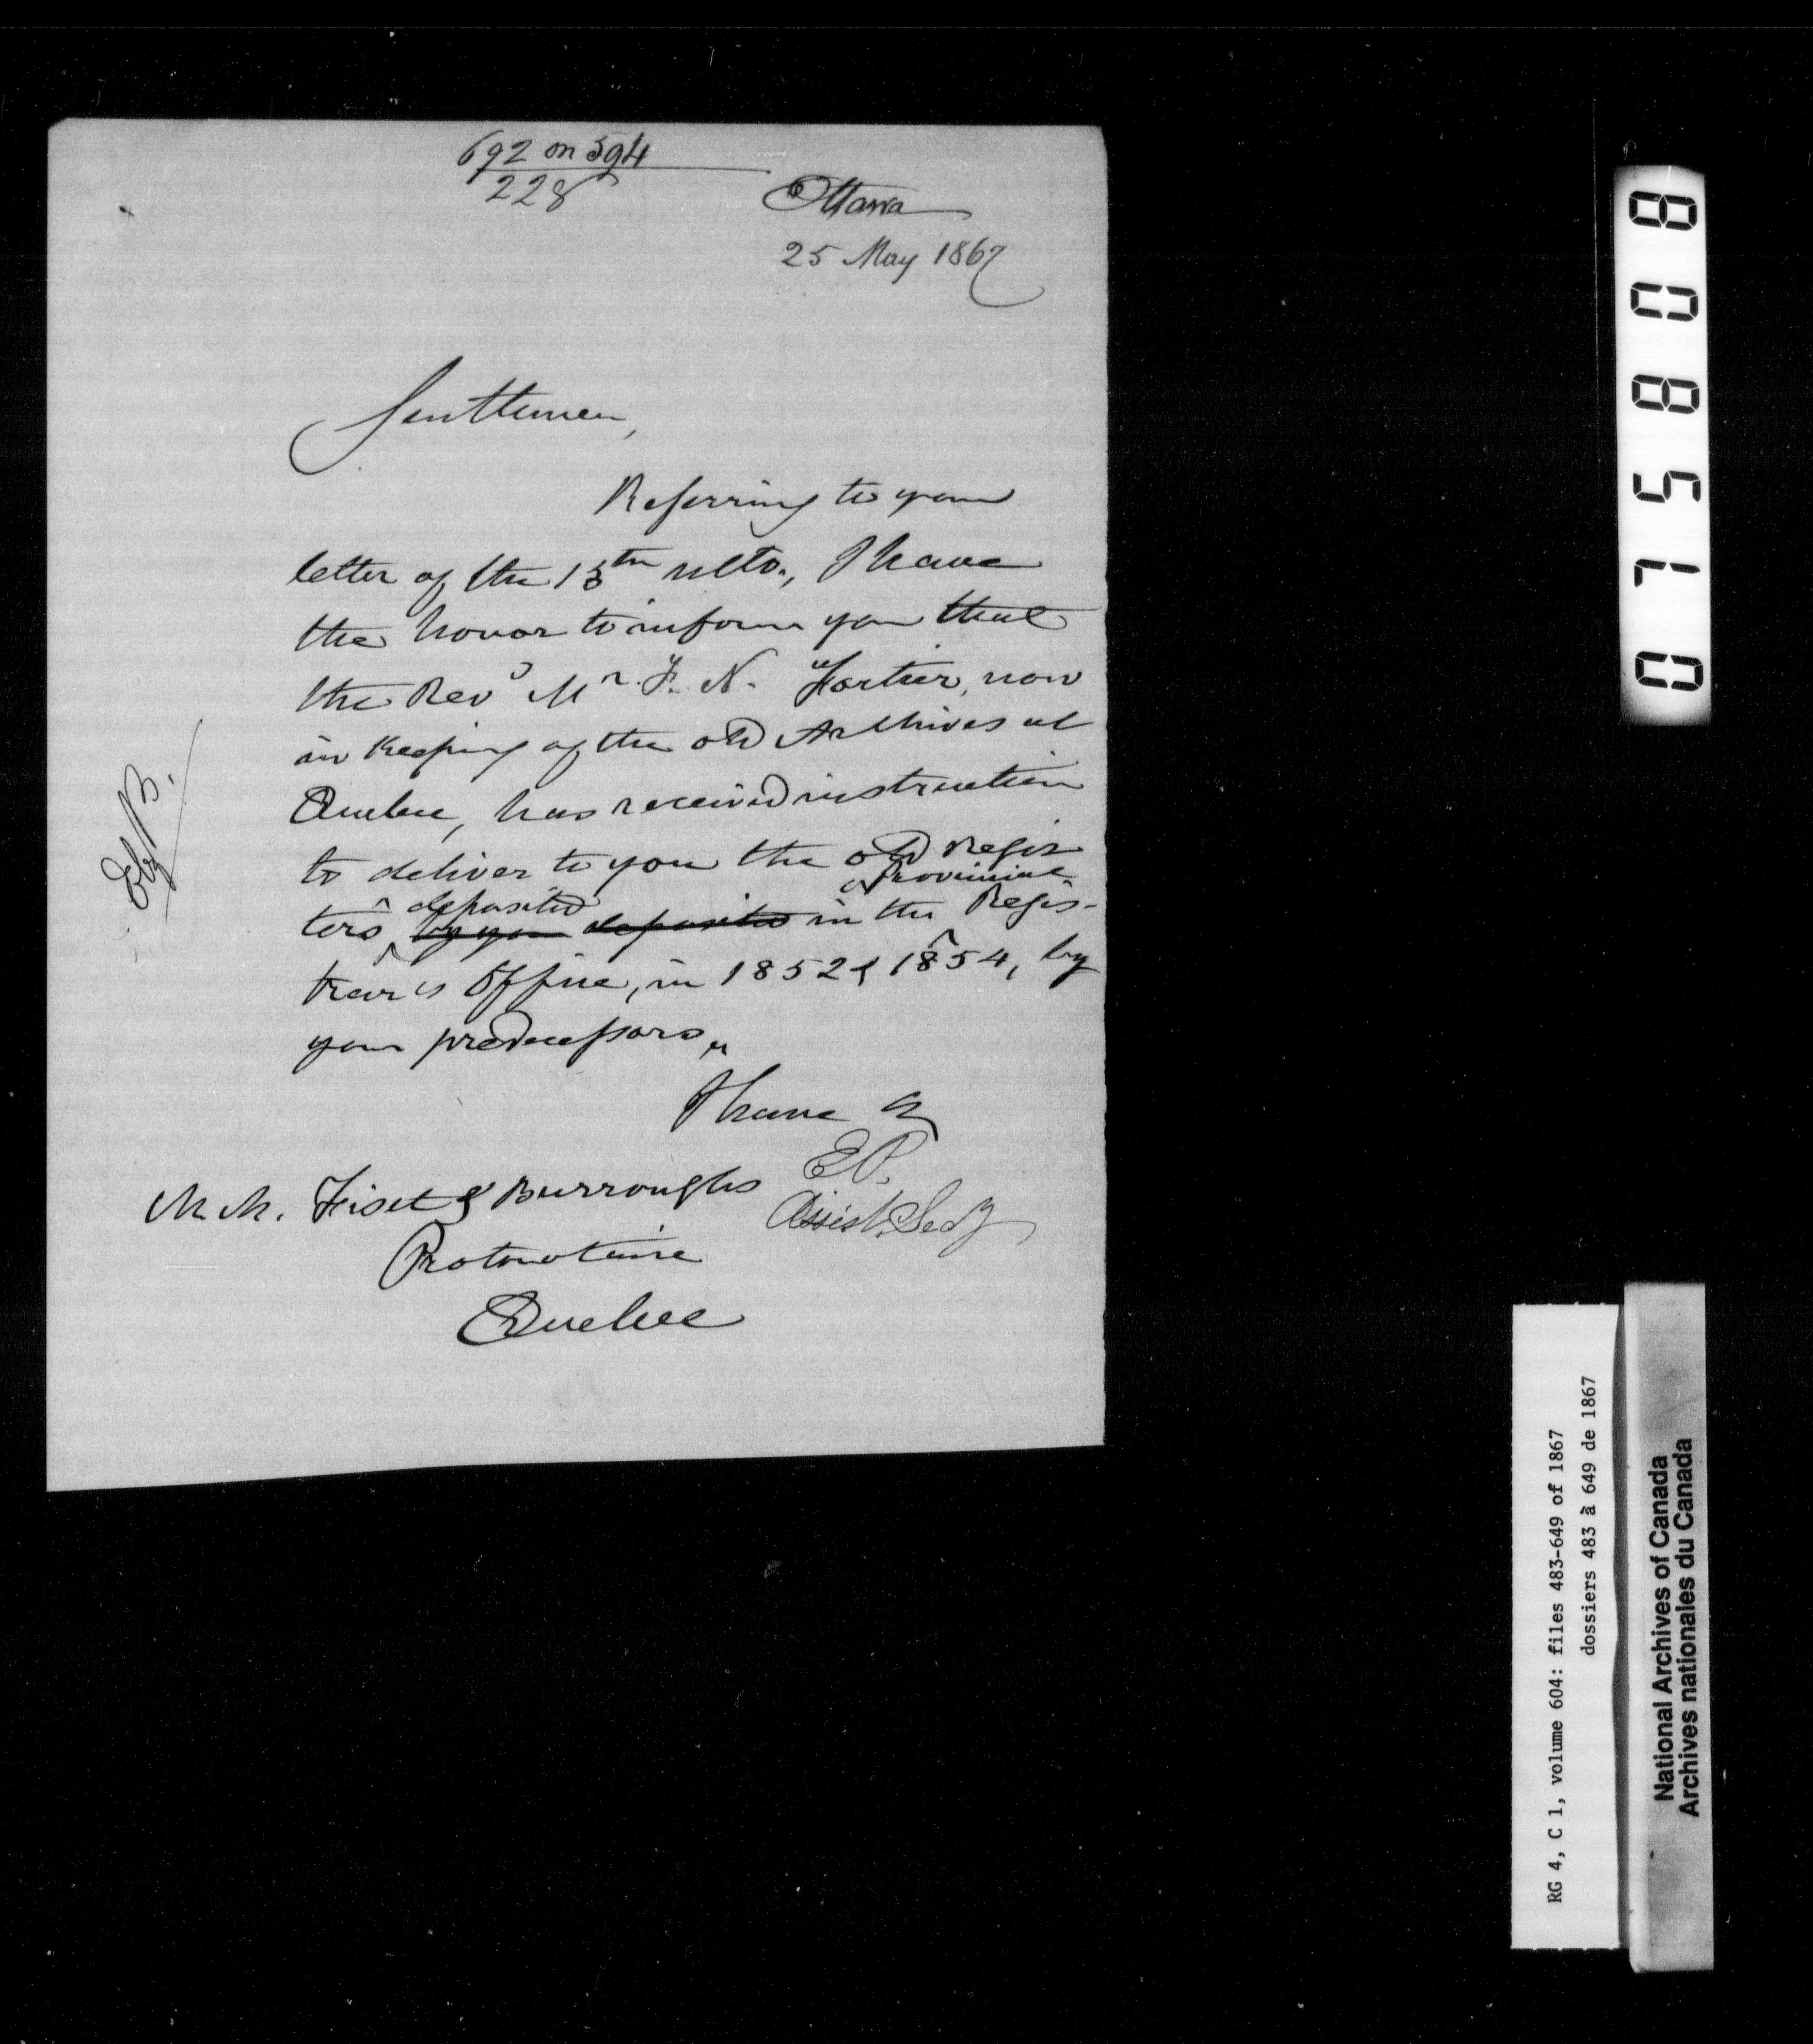 692 on 594
228
Ottawa
25 May 1867
Gentlemen,
Referring to your
letter of the 13th ulto., I have
the honor to inform you that
the Revd Mr. F. N. Fortier, now
in keeping of the old Archives at
Quebec, has received instruction
to deliver to you the old Regis
Provincial
deposited
ters by you deposited in the Regis-
trar's Office, in 1852 & 1854, by
your predecessors.
I have &
E P.
M.M. Fiset & Burroughs
Assist. Secy
Protonotaire
Quebec
075808
RG 4, C 1, volume 604: files 483-649 of 1867
dossiers 483 à 649 de 1867
National Archives of Canada
Archives nationales du Canada